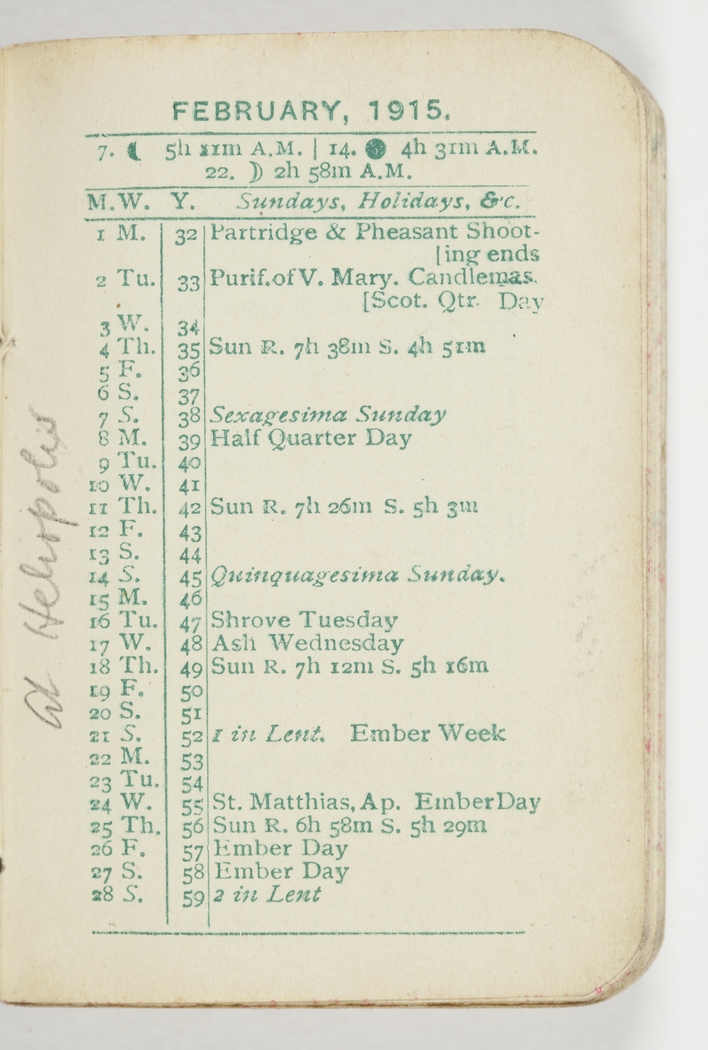 FEBRUARY, 1915.
7. ☾ 5h 11m A.M. | 14. ● 4h 31m A.M.
22. ☽ 2h 58m A.M.
M. W. Y. Sundays, Holidays, &c.
1 M. 32 Partridge & Pheasant Shoot-
[ing ends
2 Tu. 33 Purif. of V. Mary. Candlemas.
[Scot. Qtr. Day
3 W. 34
4 Th. 35 Sun R. 7h 38m S. 4h 51m
5 F. 36
6 S. 37
7 S. 38 Sexagesima Sunday
8 M. 39 Half Quarter Day
9 Tu. 40
10 W. 41
11 Th. 42 Sun R. 7h 26m S. 5h 3m
12 F. 43
13 S. 44
14 S. 45 Quinquagesima Sunday.
15 M. 46
16 Tu. 47 Shrove Tuesday
17 W. 48 Ash Wednesday
18 Th. 49 Sun R. 7h 12m S. 5h 16m
19 F. 50
20 S. 51
21 S. 52 1 in Lent. Ember Week
22 M. 53
23 Tu. 54
24 W. 55 St. Matthias, Ap. Ember Day
25 Th. 56 Sun R. 6h 58m S. 5h 29m
26 F. 57 Ember Day
27 S. 58 Ember Day
28 S. 59 2 in Lent
At Heliopolis